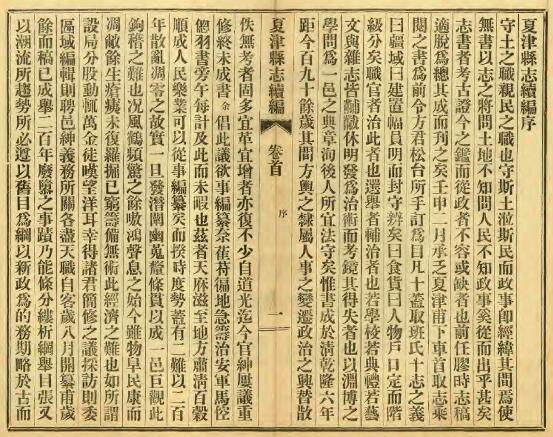 夏津縣志續編序
守土之職親民之職也守斯土涖斯民而政事卽經緯其間爲使
無書以志之將問土地不知問人民不知政事奚從而出乎甚矣
志書者考古證今之鑑而從政者不容或缺者也前任膠時志稿
適脫爲總其成而刊之矣壬申二月承乏夏津甫下車首取志乘
閱之書爲前令方君松台所手訂爲目凡十蓋取班氏十志之義
曰疆域曰建置幅員明而封守辨矣曰食貨曰人物戶口定而階
級分矣職官者治此者也選舉者輔治者也若學校若典禮若藝
文與雜志皆黼黻休明發爲治術而考鏡其得失者也以淵博之
學問爲一邑之典章洵後人所宜法守矣惟書成於清乾隆六年
距今百九十餘歲其間方輿之隸屬人事之變遷政治之興替散
夏津縣志續編
卷首
序
一
佚無考者固多宜革宜增者亦復不少自道光迄今官紳屢議重
修終未成書余倡此議欲事編纂奈萑苻徧地急籌治安軍馬倥
傯羽書旁午每計及此而未暇也茲者天庥滋至地方肅清百穀
順成人民樂業可以從事編纂矣而揆時度勢蓋有二難以二百
年散亂凋零之故實一旦發潛闡幽蒐釐條貫以成一邑巨觀此
鈎稽之難也况風鶴頻驚之餘嗷鴻聲息之始今雖物阜民康而
凋敝餘生瘡痍未復羅掘已窮籌備無術此經濟之難也如所謂
設局分股動輒萬金徒嘆望洋耳幸得諸君簡修之議採訪則委
區域編輯則聘邑紳義務所關各盡天職自客歲八月開纂甫歲
餘而稿已成舉二百年廢墜之事蹟乃能條分縷析綱舉目張又
以潮流所趨勢所必遵以舊目爲綱以新政爲的務期略於古而